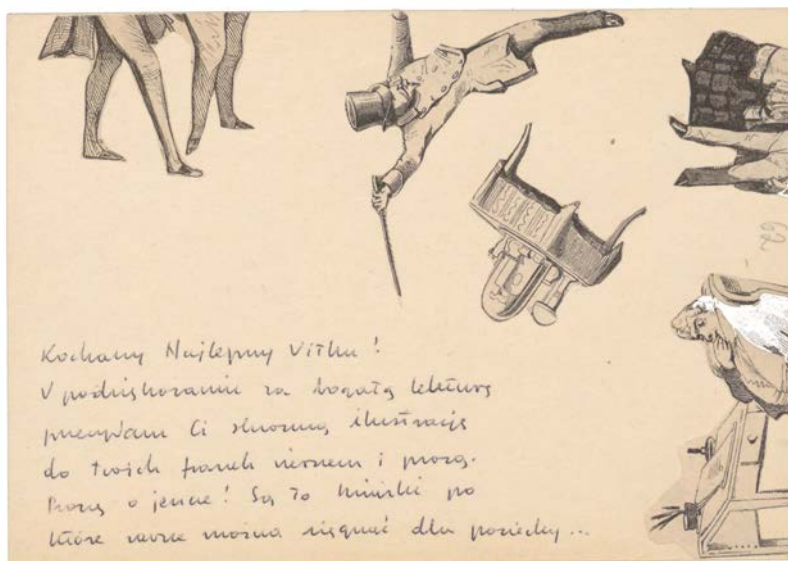 Kochany Najlepszy Vitku!
W podziękowaniu za bogatą lekturę
przesyłam Ci skromną ilustrację
do twoich fraszek wierszem i prozą.
Proszę o jeszcze! Są to książki po
które zawsze można sięgnąć dla pociechy...
62